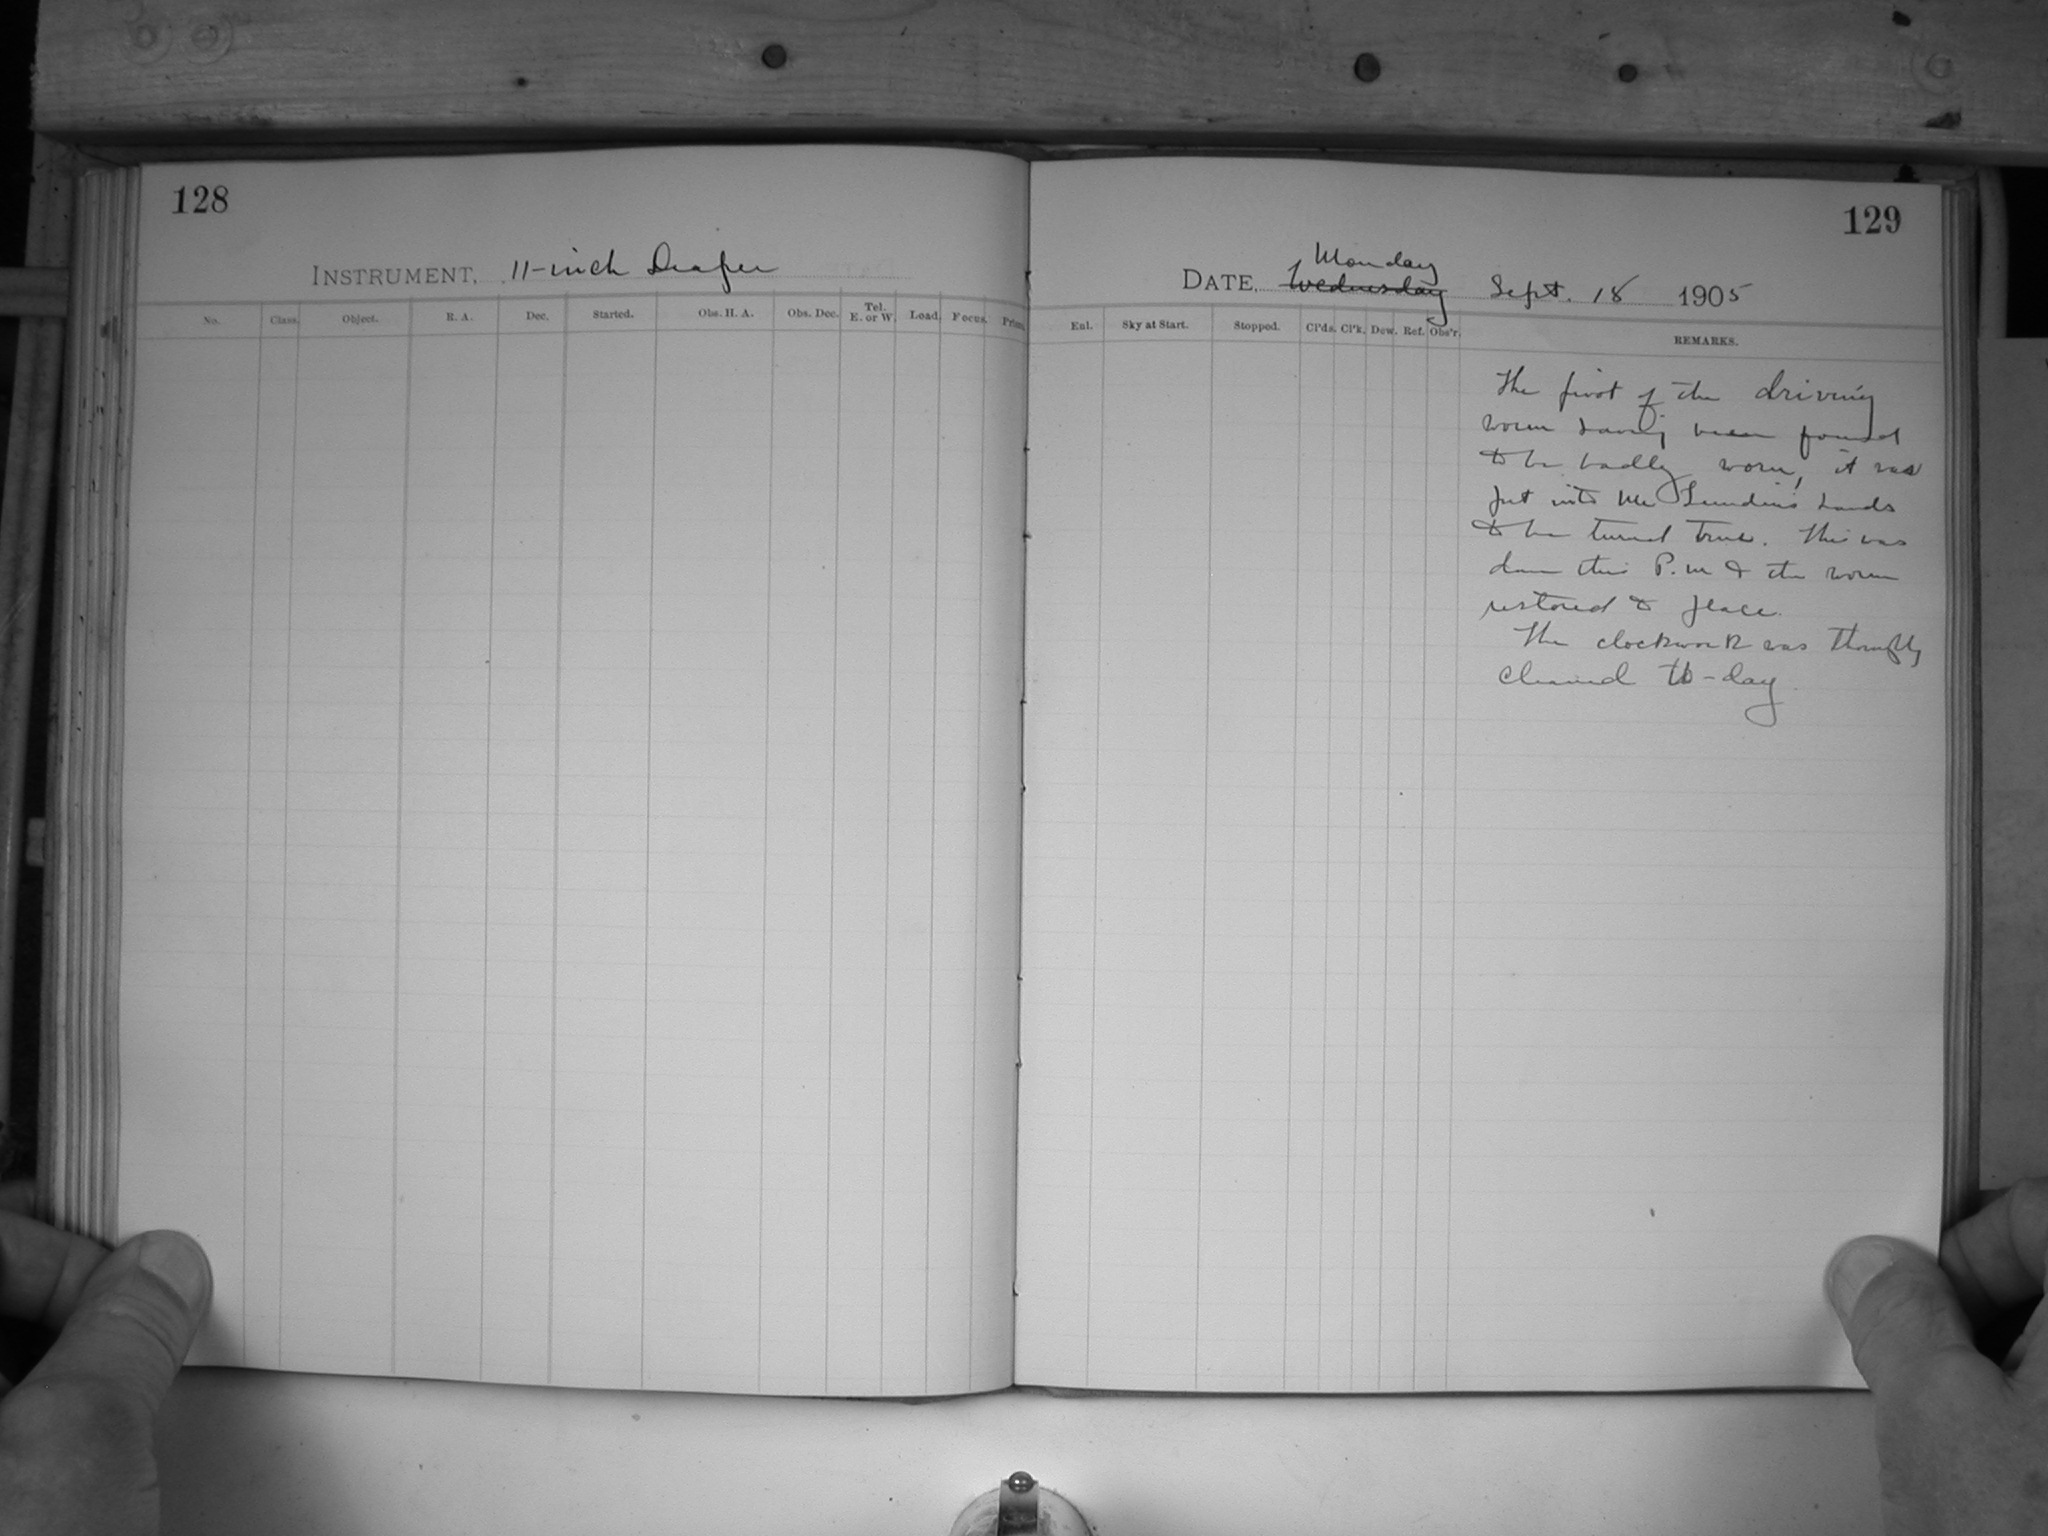 128
INSTRUMENT, 11-inch Draper
No. Class. Object. R. A. Dec. Started. Obs. H. A. Obs. Dec. Tel. E. or W. Load. Focus. Prism.
129
Monday
DATE, Wednesday Sept. 18 1905
Enl. Sky at Start. Stopped. Cl'ds. Cl'k. Dew. Ref. Obs'r. REMARKS.
The pivot of the driving
worm having been found
to be badly worn, it was
put into Mr Lundin's hands
to be turned true. This was
done this P.M & the worm
restored to place.
The clockwork was thoroughly
cleaned to-day.